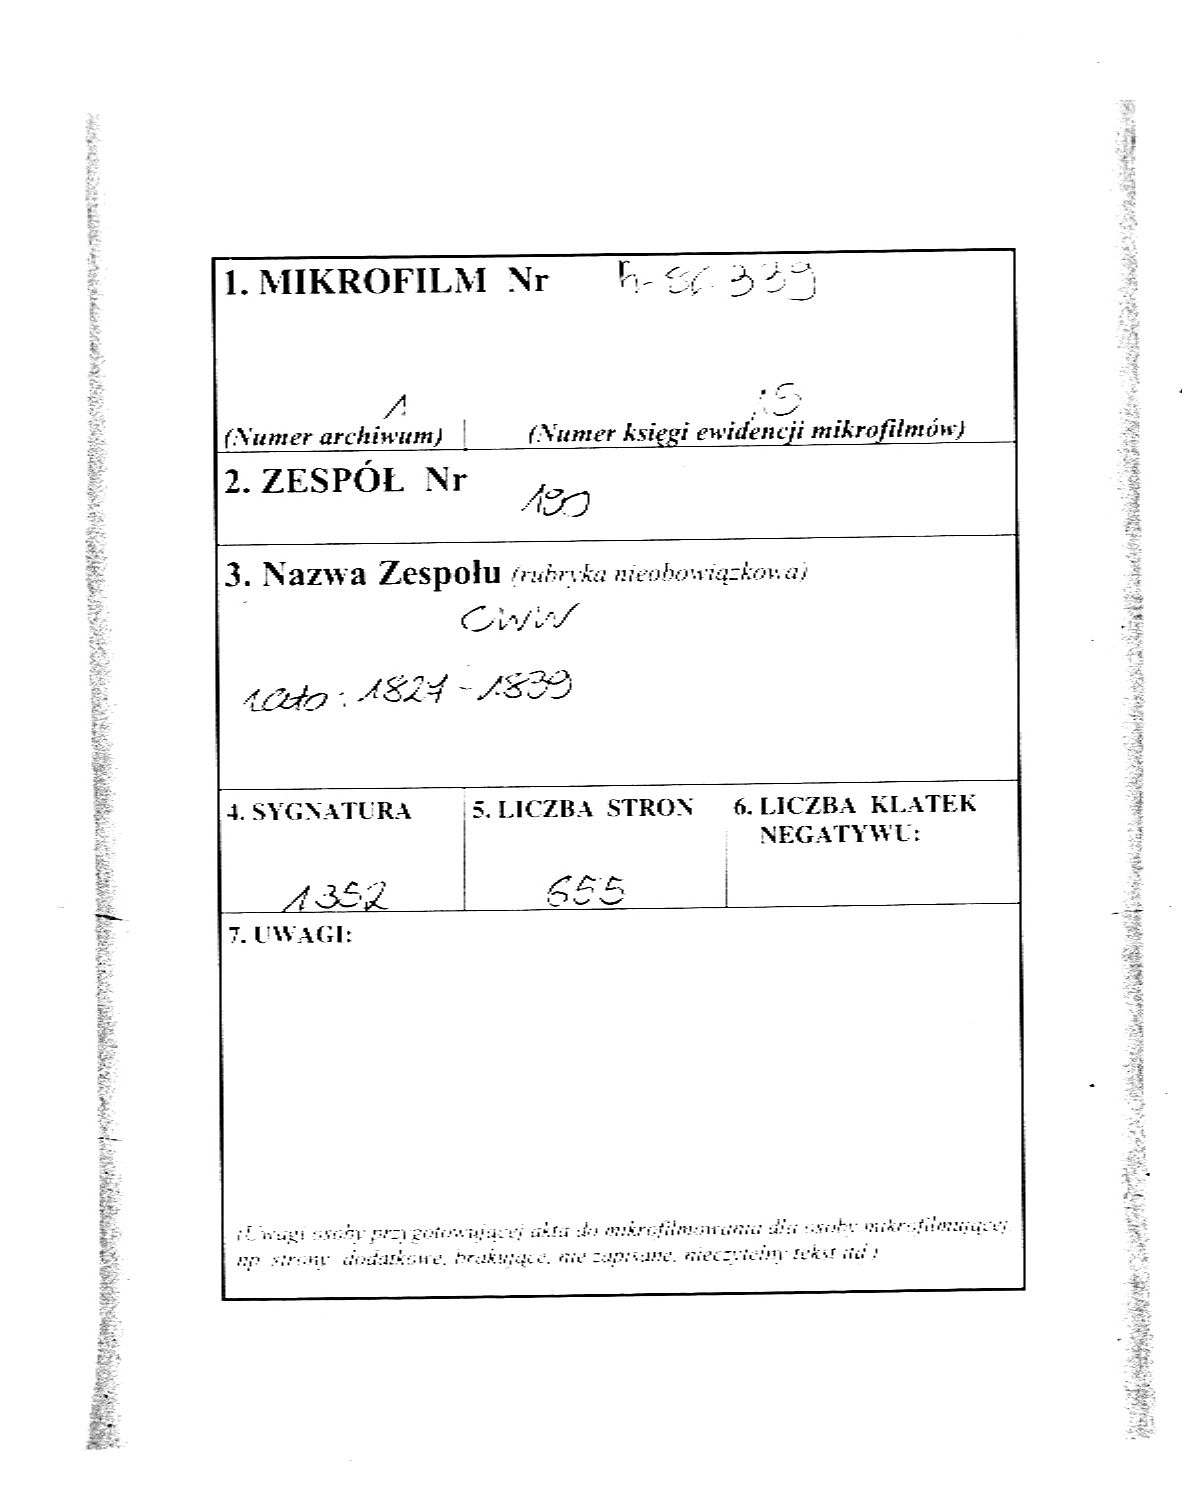 1. MIKROFILM Nr 339
1 15
(Numer archiwum) (Numer księgi ewidencji mikrofilmów)
2. ZESPÓŁ Nr 190
3. Nazwa Zespołu (rubryka nieobowiązkowa)
CWW
1827-1839
4. SYGNATURA 5. LICZBA STRON 6. LICZBA KLATEK
NEGATYWU:
1352 655
7. UWAGI:
(Uwagi osoby przygotowującej akta do mikrofilmowania dla osoby mikrofilmującej,
np. strony dodatkowe, brakujące, nie zapisane, nieczytelny tekst itd.)